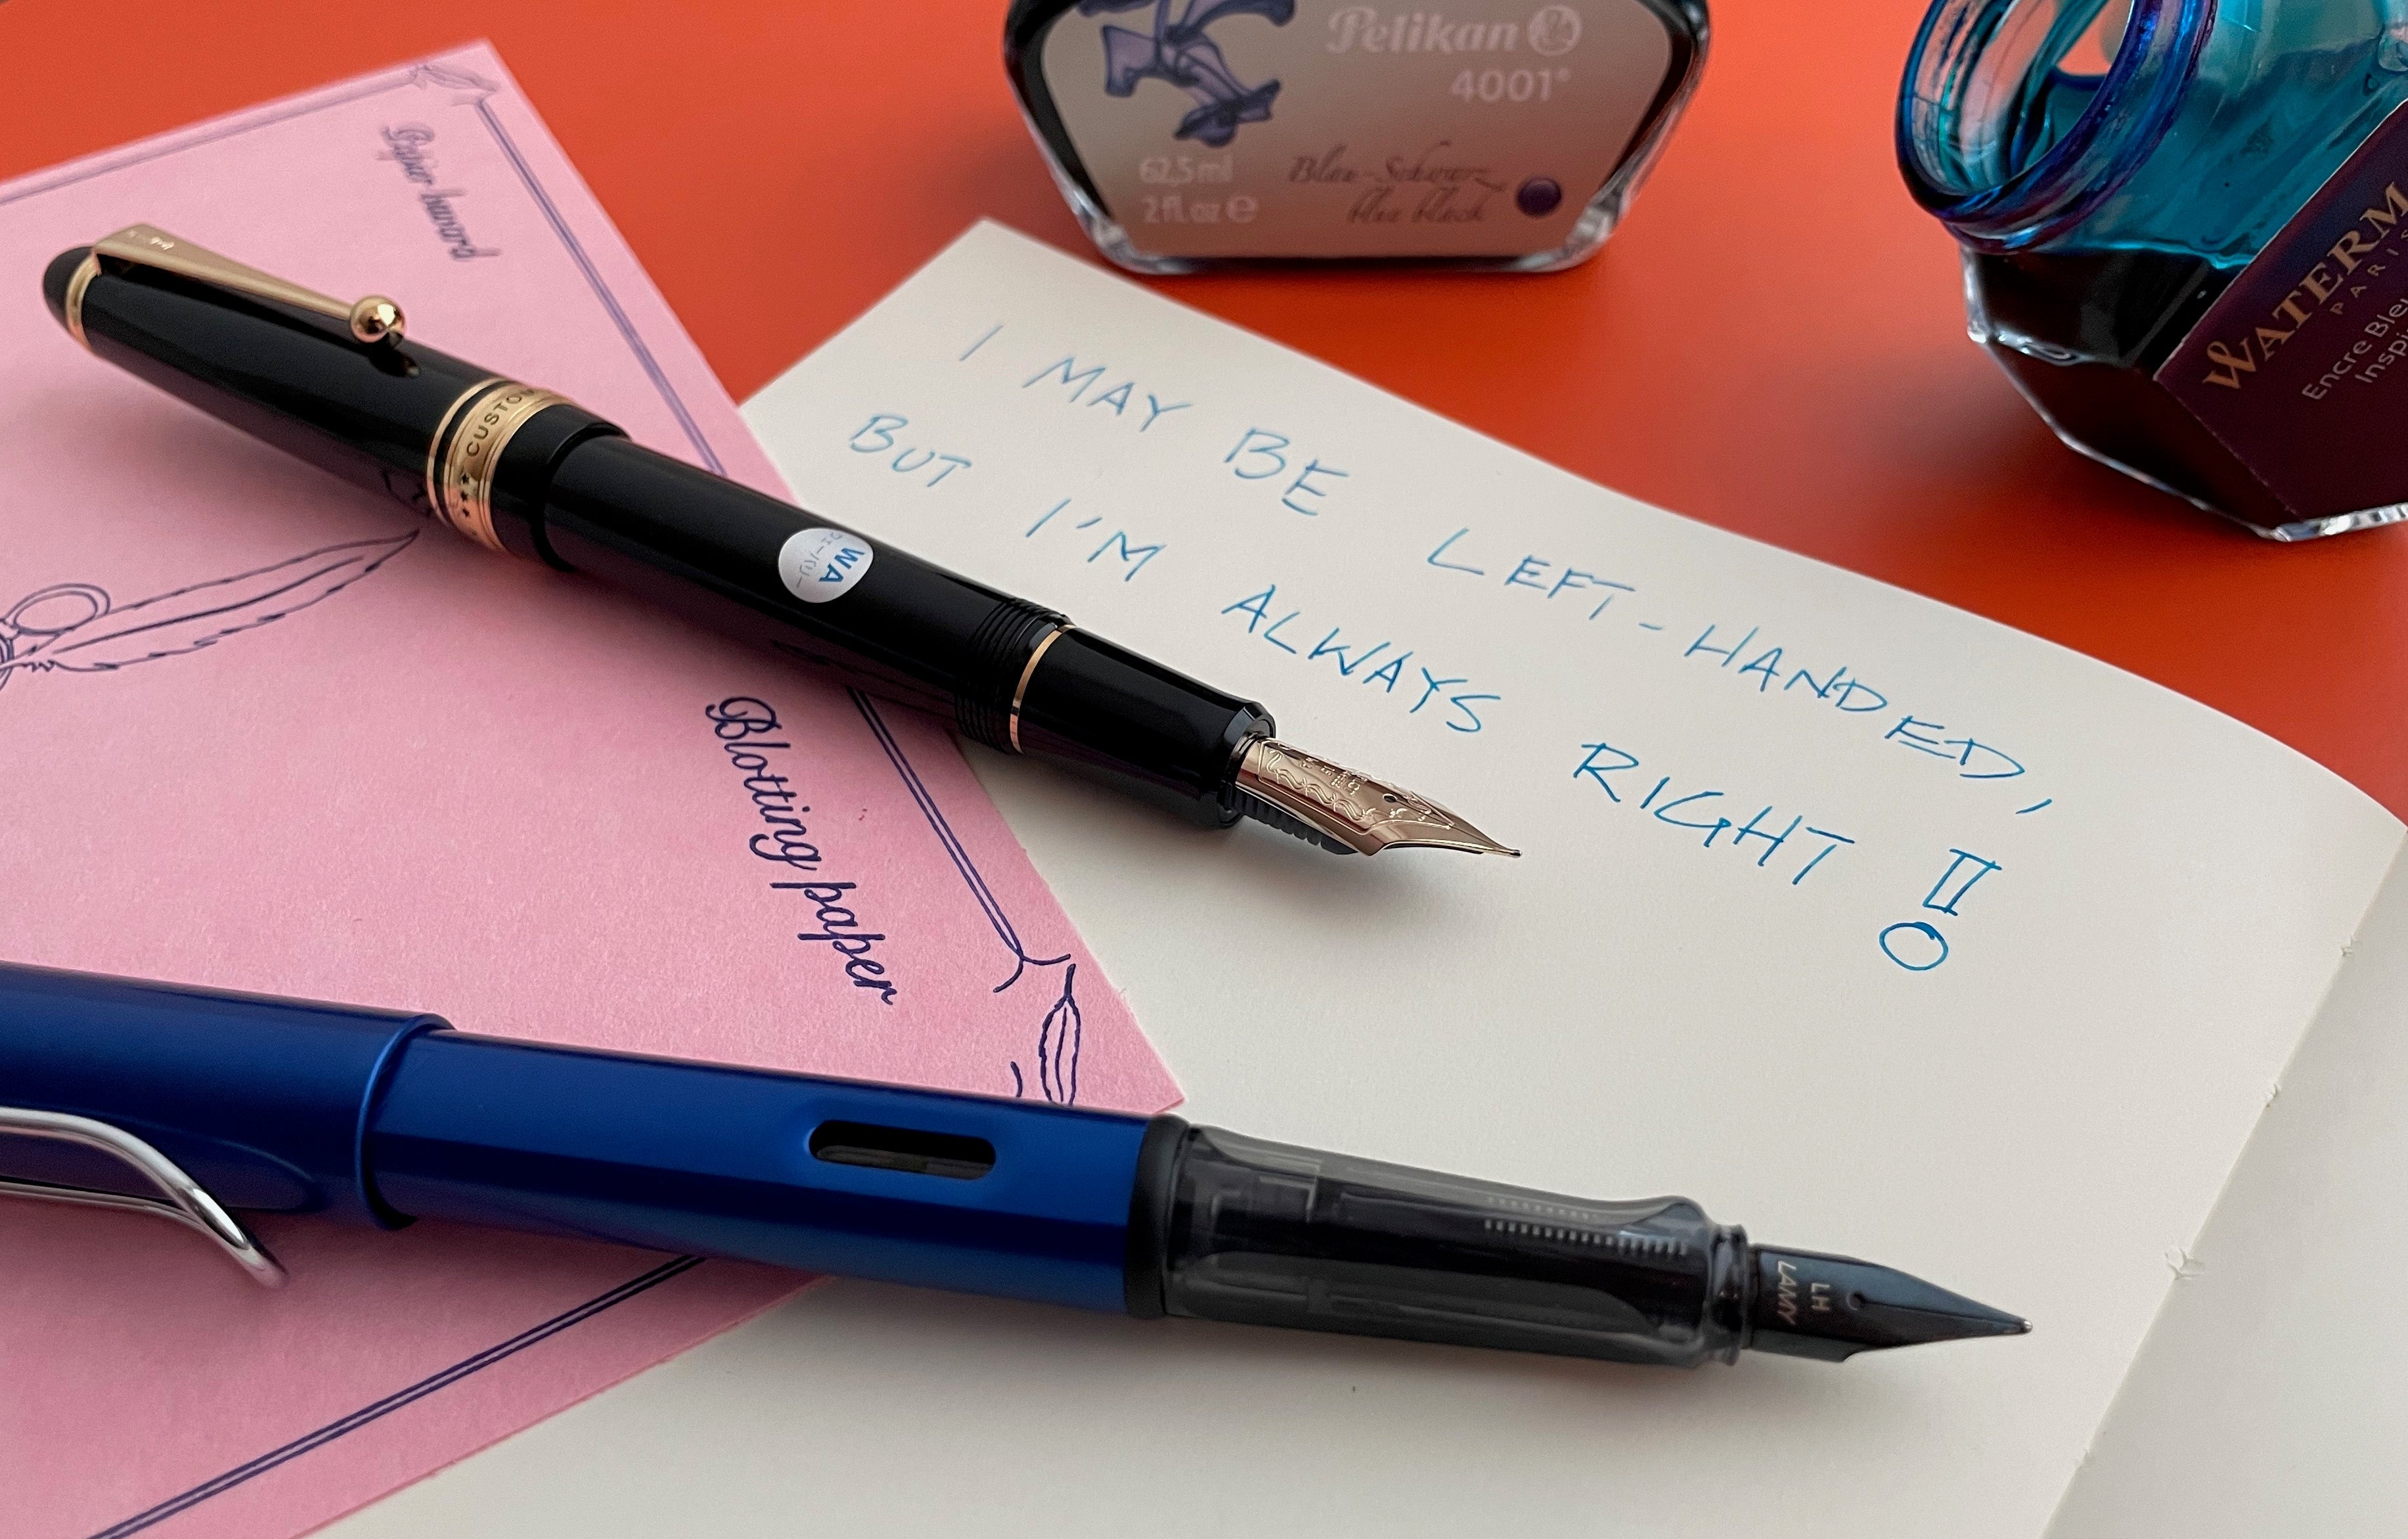 Pelikan
4001®
62,5 ml
2 fl.oz e
Blau-Schwarz
blue black
WATERM
PARIS
Encre Ble
Inspi
Papier buvard
CUSTOM
WA
ウェーバリー
I MAY BE LEFT-HANDED,
BUT I'M ALWAYS RIGHT!!
Blotting paper
LH
LAMY